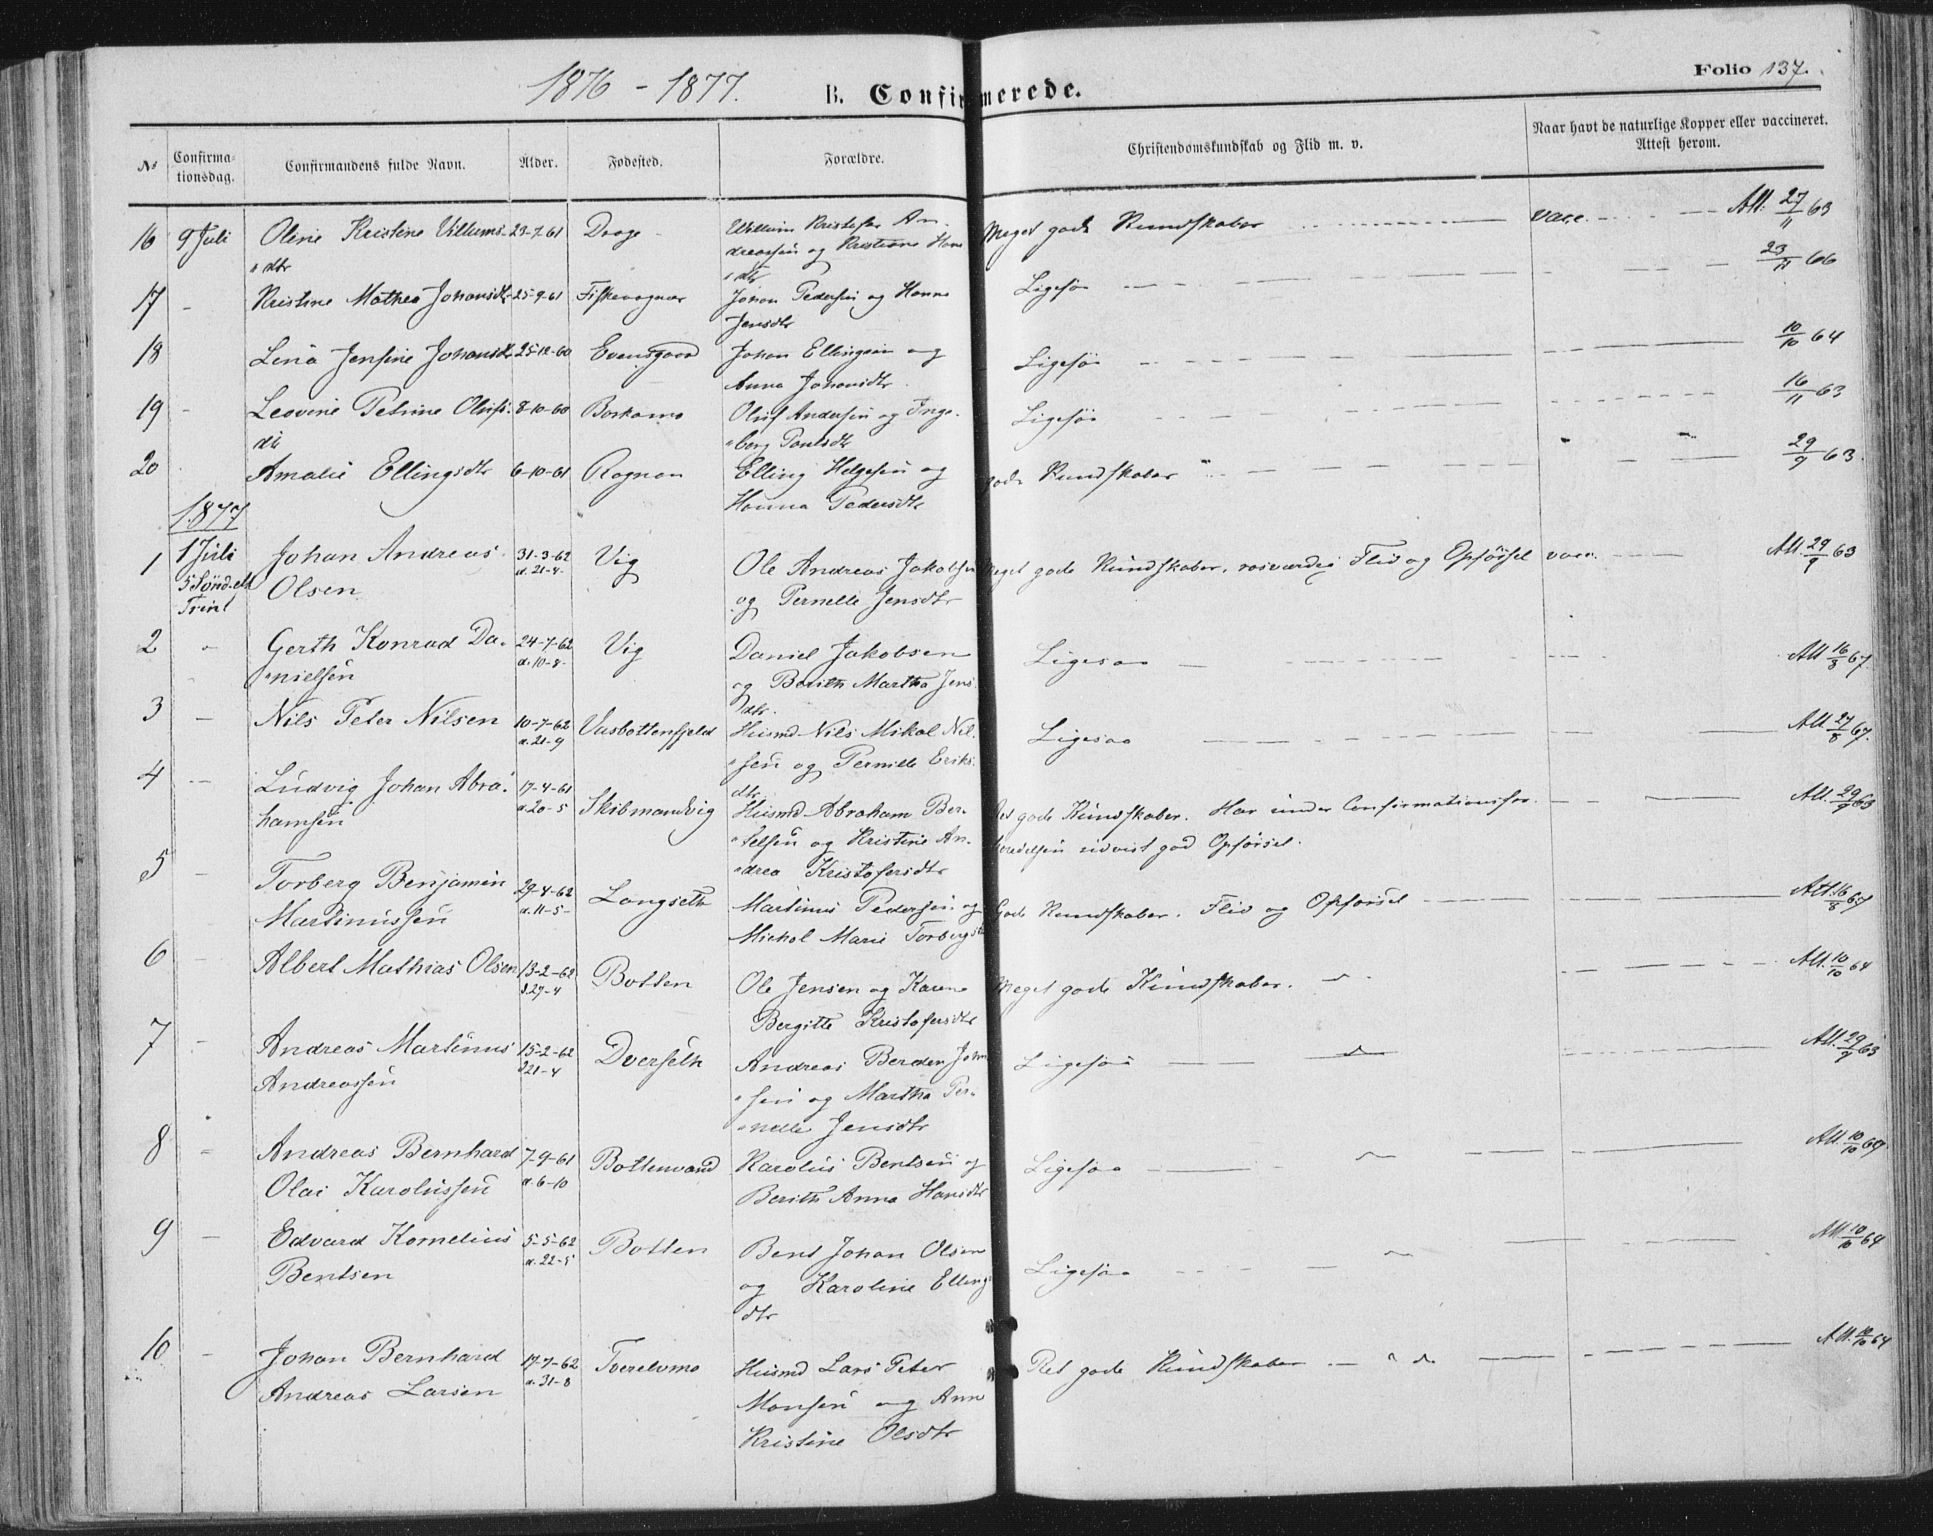 1876 - 1877.
B. Confirmerede.
Folio 137.
No
Confirma-
tionsdag.
Confirmandens fulde Navn.
Alder.
Fødested.
Forældre.
Christendomskundskab og Flid m. v.
Naar havt de naturlige Kopper eller vaccineret.
Attest herom.
16 9 Juli Oline Kristine Villums- 23-7-61 Drage Willum Kristofer An- Meget gode Kundskaber vacc. Att. 27/11 63
dtr dreassen og Kristiane Hans
dtr
17 - Kristine Mathea Johansdtr 25-9-61 Fiskevagnar Johan Pedersen og Hanna Ligesaa 23/11 66
Jensdtr
18 Lena Jensine Johansdtr 25-12-60 Evensgaard Johan Ellingsen og Ligesøa 10/10 64
Anna Johansdtr
19 - Leovine Petrine Olufs- 8-10-60 Boskamo Oluf Andersen og Inge- Ligesøa 16/11 63
dtr borg Poulsdtr
20 Amalie Ellingsdtr 6-10-61 Rognan Elling Helgesen og gode Kundskaber 29/9 63.
Hanna Pedersdtr
1877
1 1 Juli Johan Andreas 31-3-62 Vig Ole Andreas Jakobsen Meget gode Kundskaber, rosværdig Flid og Opførsel vacc. Att. 29/9 63
5 Sønd. eft. Olsen d. 21-4- og Pernelle Jensdtr
Trinit
2 " Gerth Konrad Da- 24-7-62 Vig Daniel Jakobsen Ligesaa Att 16/8 67.
nielsen d. 10-8- og Berith Martha Jens
dtr.
3 - Nils Peter Nilsen 10-7-62 Vasbottenfjeld Husmd Nils Mikal Nil- Ligesaa Att 27/8 67.
d. 21-9 sen og Pernille Eriks-
dtr.
4 - Ludvig Johan Abra- 17-4-61 Skibmandvig Husmd Abraham Ber- Ret gode Kundskaber. Har under Confirmationsfor- Att. 29/9 63
hamsen d. 20-5 telsen og Kristine An- beredelsen udvist god Opførsel.
drea Kristofersdtr
5 - Torberg Benjamin 29-4-62 Langseth Martinus Pedersen og Gode Kundskaber. Flid og Opførsel Att. 16/8 67
Martinussen d. 11-5- Michal Marie Torbergsdtr
6 - Albert Mathias Olsen 13-2-62 Botten Ole Jensen og Karen Meget gode Kundskaber. Att. 10/10 64
d. 27-4 Bergitte Kristofersdtr
7 - Andreas Martinus 15-2-62 Dverseth Andreas Berdon Johan Ligesøa Att. 29/9 63
Andreassen d 21-4 sen og Martha Per-
nelle Jensdtr
8 - Andreas Bernhard 7-9-61 Bottenvand Karolus Bentsen og Ligesøa Att. 10/10 69.
Olai Karolussen d. 6-10 Berith Anna Hansdtr
9 - Edvard Kornelius 5-5-62 Botten Bent Johan Olsen Ligesøa Att. 10/10 64
Bentsen d. 22-5 og Karoline Ellings
dtr
10 - Johan Bernhard 17-7-62 Tverelvmo Husmd Lars Peter Ret gode Kundskaber Att. 10/10 64
Andreas Larsen d. 31-8 Monsen og Ane
Kristine Olsdtr